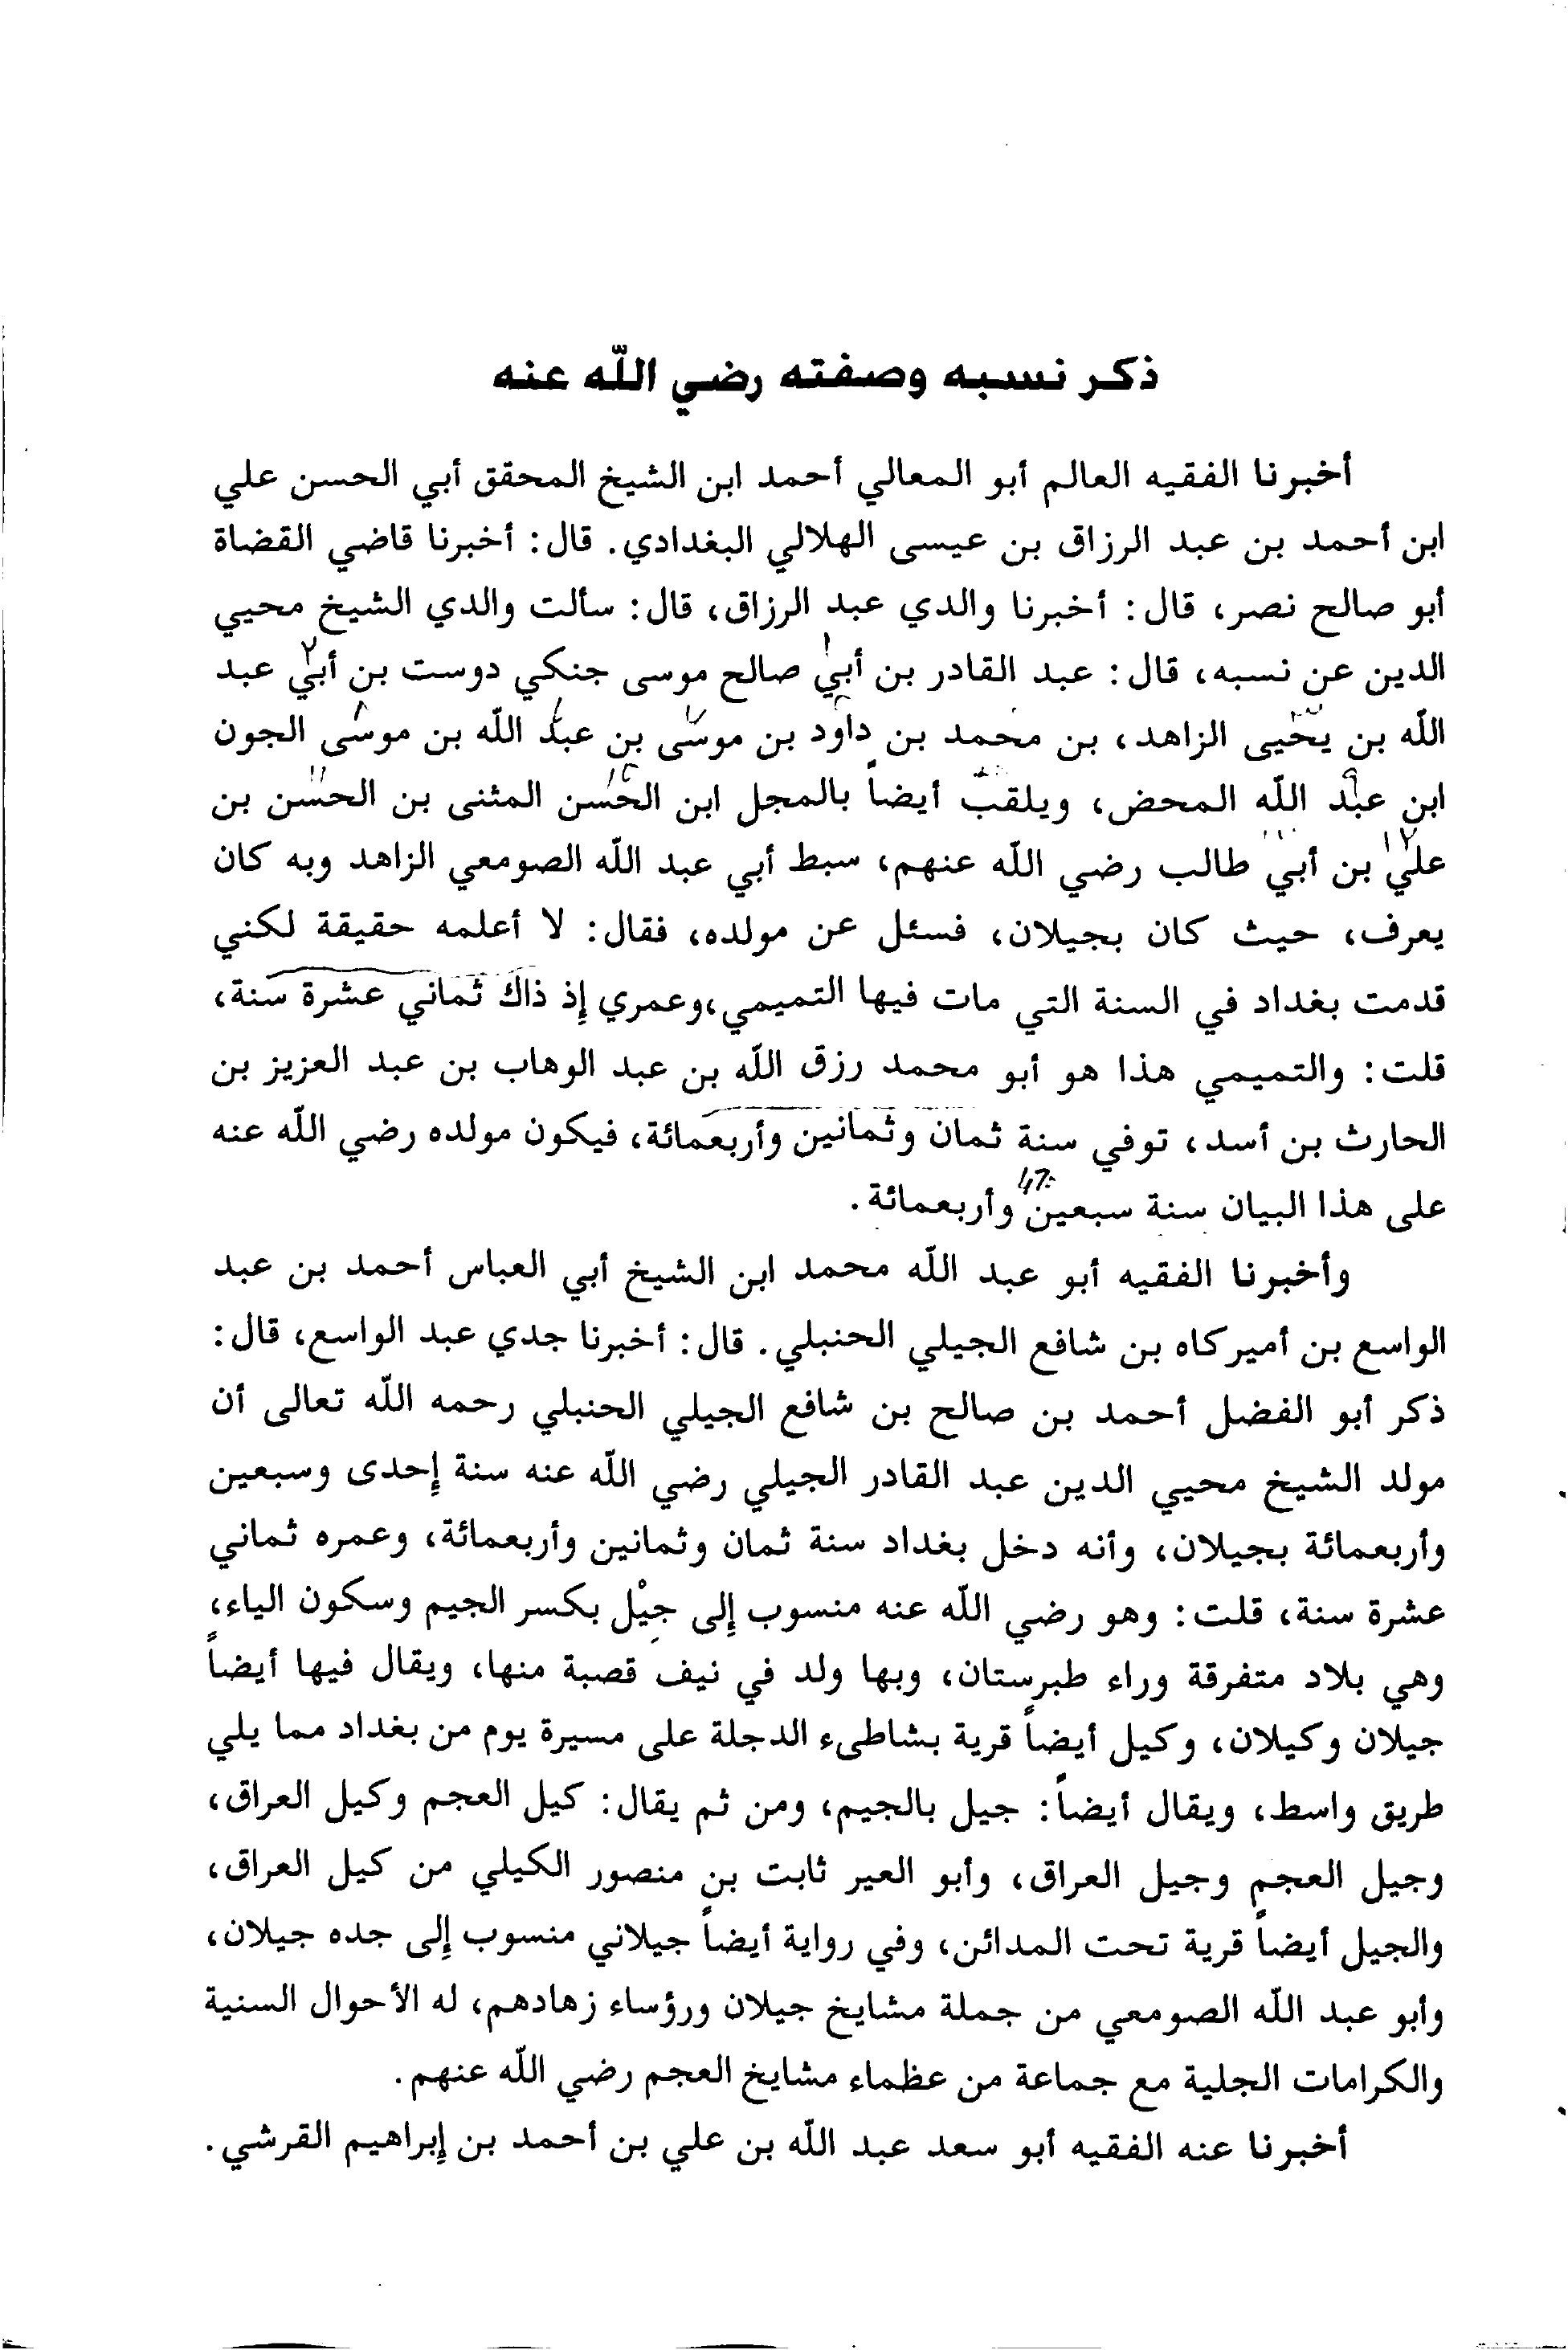 ذكر نسبه وصفته رضي اللّه عنه
أخبرنا الفقيه العالم أبو المعالي أحمد ابن الشيخ المحقق أبي الحسن علي
ابن أحمد بن عبد الرزاق بن عيسى الهلالي البغدادي. قال: أخبرنا قاضي القضاة
أبو صالح نصر، قال: أخبرنا والدي عبد الرزاق، قال: سألت والدي الشيخ محيي
الدين عن نسبه، قال: عبد القادر بن أبي صالح موسى جنكي دوست بن أبي عبد
اللّه بن يحيى الزاهد، بن محمد بن داود بن موسى بن عبد اللّه بن موسى الجون
ابن عبد اللّه المحض، ويلقب أيضاً بالمجل ابن الحسن المثنى بن الحسن بن
علي بن أبي طالب رضي اللّه عنهم، سبط أبي عبد اللّه الصومعي الزاهد وبه كان
يعرف، حيث كان بجيلان، فسئل عن مولده، فقال: لا أعلمه حقيقة لكني
قدمت بغداد في السنة التي مات فيها التميمي، وعمري إذ ذاك ثماني عشرة سنة،
قلت: والتميمي هذا هو أبو محمد رزق اللّه بن عبد الوهاب بن عبد العزيز بن
الحارث بن أسد، توفي سنة ثمان وثمانين وأربعمائة، فيكون مولده رضي اللّه عنه
على هذا البيان سنة سبعين وأربعمائة.
وأخبرنا الفقيه أبو عبد اللّه محمد ابن الشيخ أبي العباس أحمد بن عبد
الواسع بن أميركاه بن شافع الجيلي الحنبلي. قال: أخبرنا جدي عبد الواسع، قال:
ذكر أبو الفضل أحمد بن صالح بن شافع الجيلي الحنبلي رحمه اللّه تعالى أن
مولد الشيخ محيي الدين عبد القادر الجيلي رضي اللّه عنه سنة إحدى وسبعين
وأربعمائة بجيلان، وأنه دخل بغداد سنة ثمان وثمانين وأربعمائة، وعمره ثماني
عشرة سنة، قلت: وهو رضي اللّه عنه منسوب إلى جِيْل بكسر الجيم وسكون الياء،
وهي بلاد متفرقة وراء طبرستان، وبها ولد في نيف قصبة منها، ويقال فيها أيضاً
جيلان وكيلان، وكيل أيضاً قرية بشاطىء الدجلة على مسيرة يوم من بغداد مما يلي
طريق واسط، ويقال أيضاً: جيل بالجيم، ومن ثم يقال: كيل العجم وكيل العراق،
وجيل العجم وجيل العراق، وأبو العير ثابت بن منصور الكيلي من كيل العراق،
والجيل أيضاً قرية تحت المدائن، وفي رواية أيضاً جيلاني منسوب إلى جده جيلان،
وأبو عبد اللّه الصومعي من جملة مشايخ جيلان ورؤساء زهادهم، له الأحوال السنية
والكرامات الجلية مع جماعة من عظماء مشايخ العجم رضي اللّه عنهم.
أخبرنا عنه الفقيه أبو سعد عبد اللّه بن علي بن أحمد بن إبراهيم القرشي.